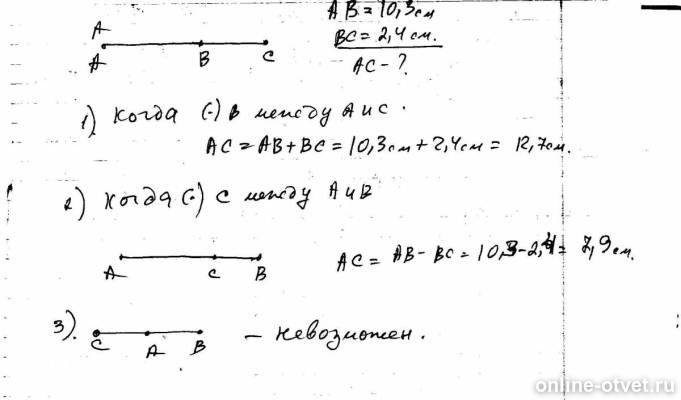 AB = 10,3 см
BC = 2,4 см.
AC - ?
A
A B C
1) Когда (·) B между A и C.
AC = AB + BC = 10,3 см + 2,4 см = 12,7 см.
2) Когда (·) C между A и B
A C B
AC = AB - BC = 10,3 - 2,4 = 7,9 см.
3). C A B - невозможен.
online-otvet.ru